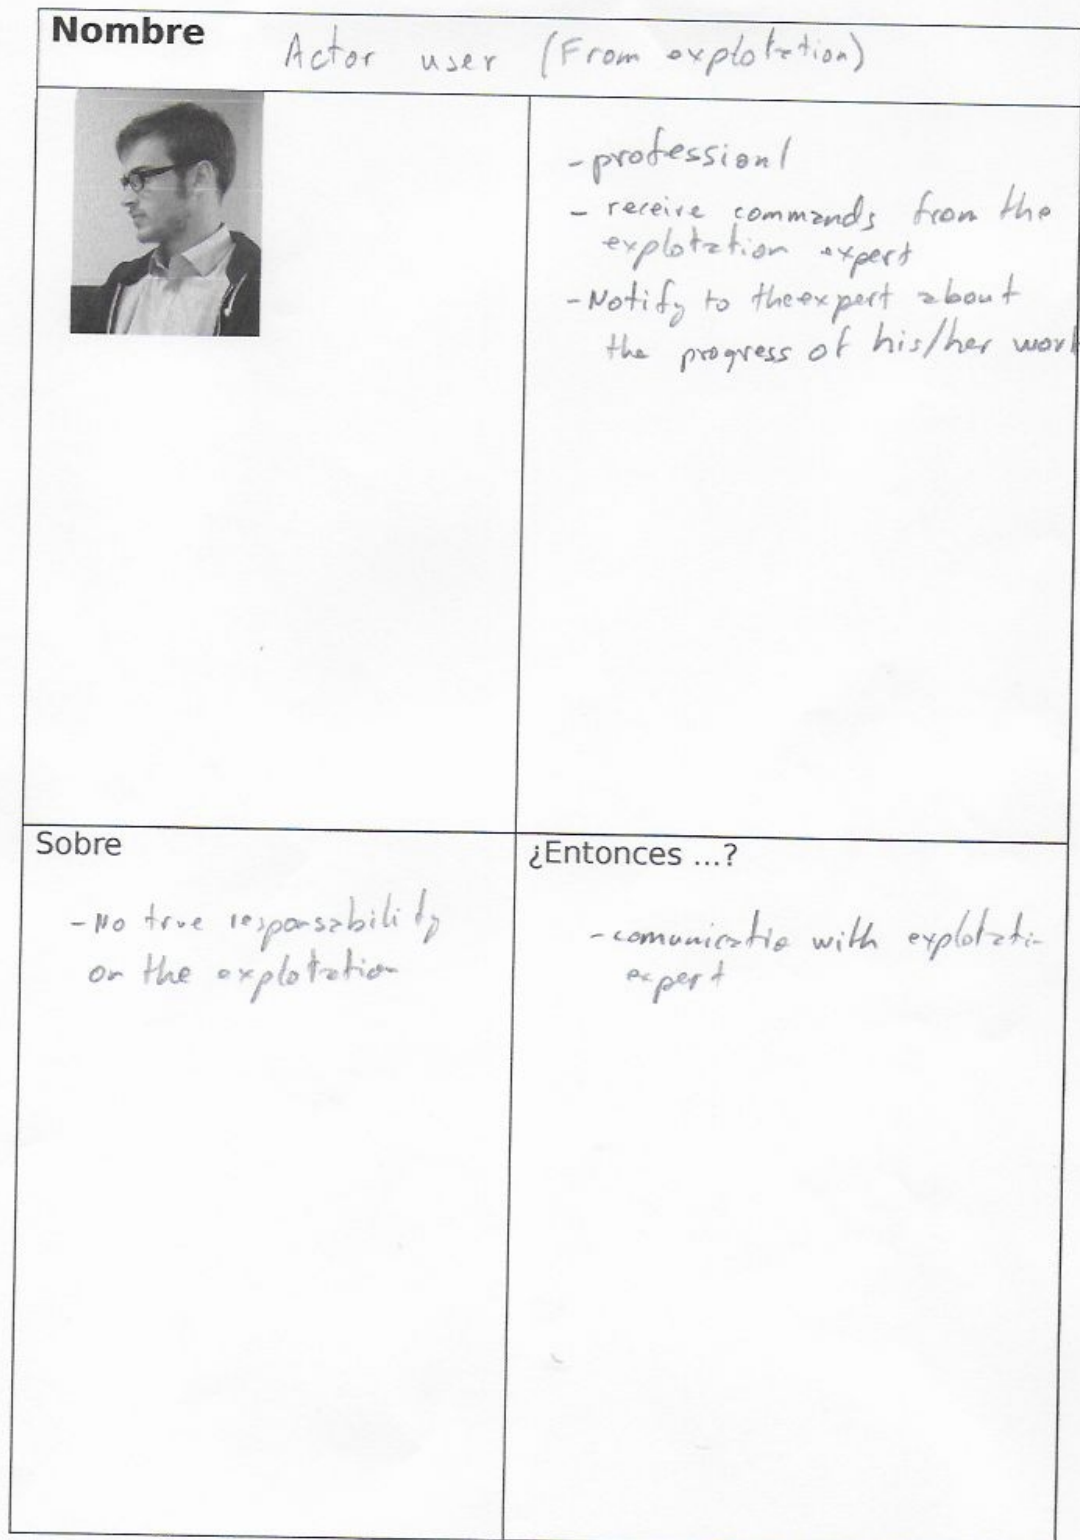 Nombre Actor user (From explotation)
- professionl
- receive commands from the
explotation expert
- Notify to the expert about
the progress of his/her work
Sobre
- No true responsability
on the explotation
¿Entonces ...?
- comunicatio with explotatio
expert